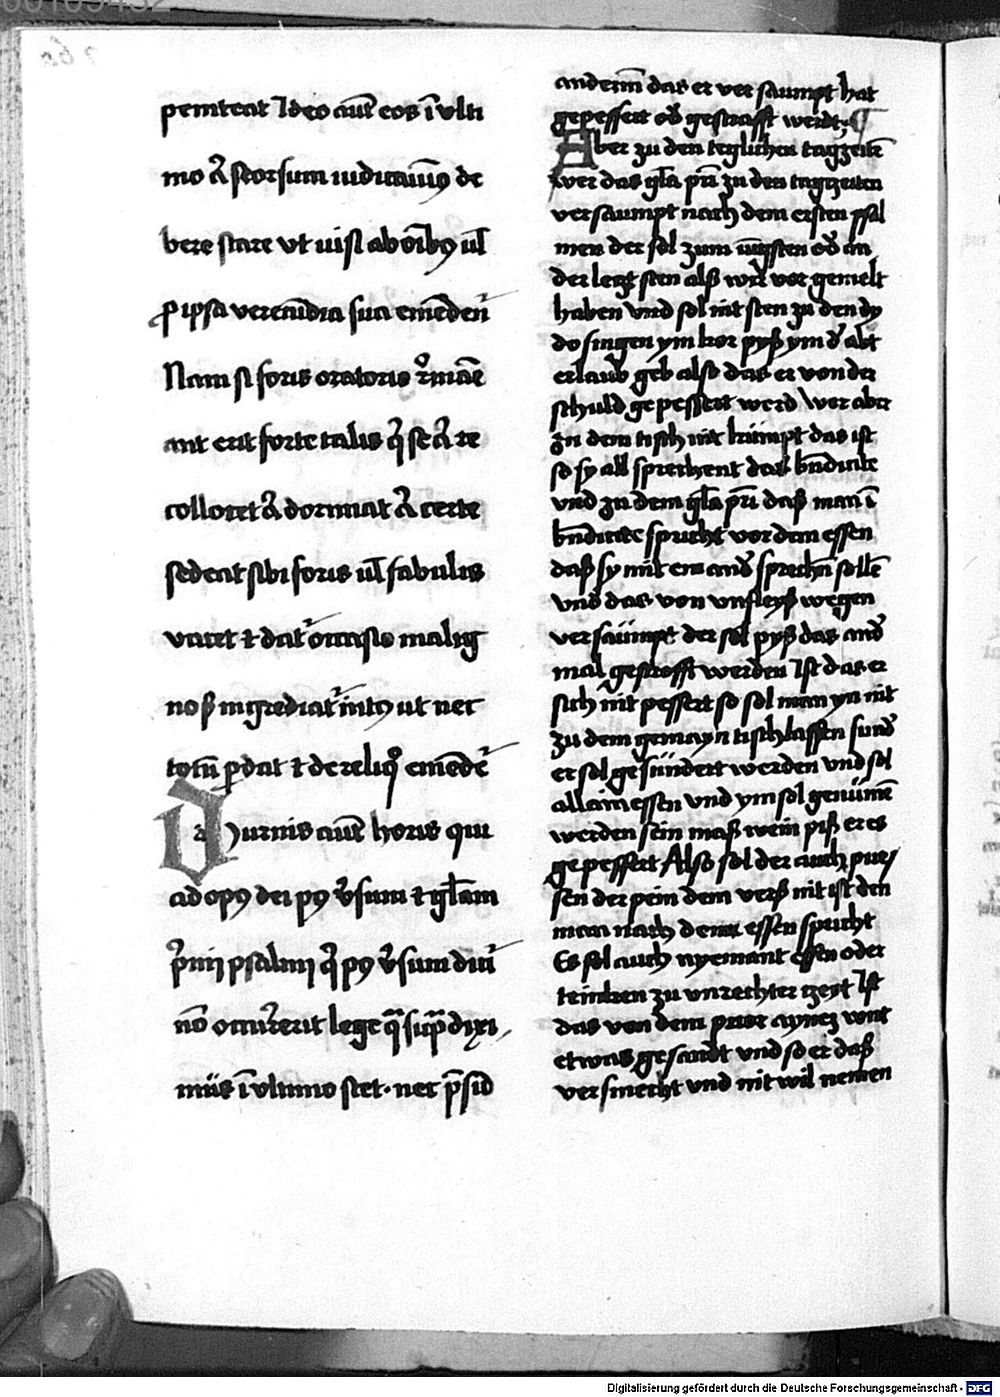 peniteat Ideo autē eos ī vlti
mo aū seorsum iudicauim9 de
bere stare vt uisi ab oīb9 ul̄
ꝓ ipsa verecūdia sua emēdent̄
Nam si foris oratorio rͦmāē
ant erit forte talis q̄ se aū re
collocet aū dormiat aū certe
sedeat sibi foris ul̄ fabulis
vacet ⁊ dat̄ occasio malig
no ꝑ ingrediat̄ int9 ut nec
totū perdat ⁊ de reliqͦ emēdēt̄
Diurnis autē horis qui
ad op9 dei p9 v̄sum ⁊ gl̄am
p̄mi psalmi q̄ p9 v̄sum dicit̄
nō occurrerit lege qua supra dixi
mus ī vltimo stet · nec p̄sid
anderm̄ das er ver saumpt hat
gepessert od̄ gestrafft werdt · ¶
Aber zu den teglichen tagzeitē
wer das gl̄a pr̄i zu den tagzeiten
versaumpt nach dem ersten psal
men der sol zum iūgsten od̄ an
der letzt sten alß wir vor gemelt
haben vnd sol nit sten zu den dy
do singen ym kor pyß ym d̄ abt
erlaub geb also das er von der
schuld gepessert werd Wer aber
zu dem tisch nit kümpt das ist
so sy all sprechent das bn̄dicite
vnd zu dem gl̄a pr̄i daß man ī
bn̄dicite spricht vor dem essen
daß sy mit em and̄ sprechn̄ sollē
vnd das von vnfleyß wegen
versäümpt der sol pyß das and̄
mal gestrofft werden Ist das er
sich nit pessert so sol man yn nit
zu dem gemayn tisch lassen sund̄
er sol gesündert werden vnd sol
allain essen vnd ym sol genümē
werden sein maß wein piß er es
gepessert Also sol der auch pues
sen der pein dem verß nit ist den
man nach dem essen spricht
Es sol auch nyemant essen oder
trinken zu vnrechter tzeyt Ist
das von dem prior aynez wirt
etwas gesandt vnd so er daß
versmecht vnd nit wil nemen
Digitalisierung gefördert durch die Deutsche Forschungsgemeinschaft - DFG